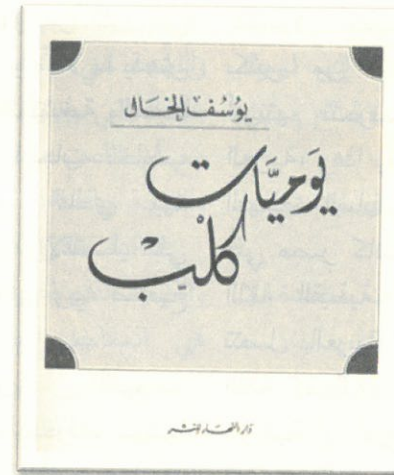 يوسف الخال
يوميَّات
كلب
دار النهار للنشر